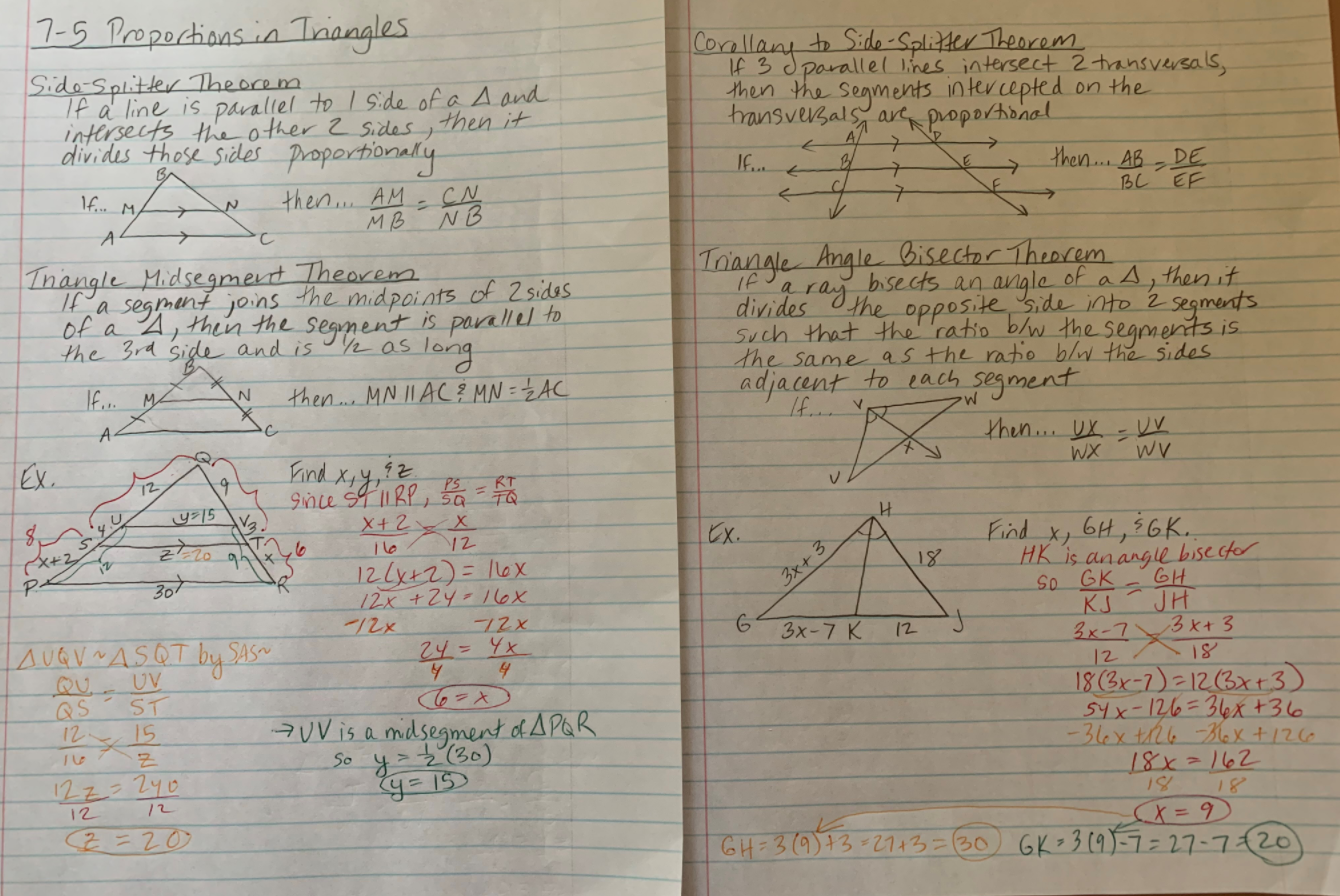 7-5 Proportions in Triangles
Side-Splitter Theorem
If a line is parallel to 1 side of a Δ and
intersects the other 2 sides, then it
divides those sides proportionally
If...
B
M
N
A
C
then... AM/MB = CN/NB
Triangle Midsegment Theorem
If a segment joins the midpoints of 2 sides
of a Δ, then the segment is parallel to
the 3rd side and is 1/2 as long
If...
B
M
N
A
C
then... MN || AC & MN = 1/2 AC
Ex.
Q
12
9
U
y=15
V
8
4
3
S
z=20
T
6
x+2
12
9
x
P
30
R
Find x, y, & z
Since ST || RP, PS/SQ = RT/TQ
x+2/16 = x/12
12(x+2) = 16x
12x + 24 = 16x
-12x -12x
24/4 = 4x/4
6 = x
→ UV is a midsegment of ΔPQR
so y = 1/2 (30)
y = 15
ΔUQV ~ ΔSQT by SAS~
QU/QS = UV/ST
12/16 = 15/z
12z/12 = 240/12
z = 20
Corollary to Side-Splitter Theorem
If 3 parallel lines intersect 2 transversals,
then the segments intercepted on the
transversals are proportional
If...
A
D
B
E
C
F
then... AB/BC = DE/EF
Triangle Angle Bisector Theorem
If a ray bisects an angle of a Δ, then it
divides the opposite side into 2 segments
such that the ratio b/w the segments is
the same as the ratio b/w the sides
adjacent to each segment
If...
V
W
X
U
then... UX/WX = UV/WV
Ex.
H
3x+3
18
G
3x-7
K
12
J
Find x, GH, & GK.
HK is an angle bisector
so GK/KJ = GH/JH
3x-7/12 3x+3/18
18(3x-7) = 12(3x+3)
54x-126 = 36x+36
-36x+126 -36x+126
18x/18 = 162/18
x = 9
GH = 3(9)+3 = 27+3 = 30
GK = 3(9)-7 = 27-7 = 20